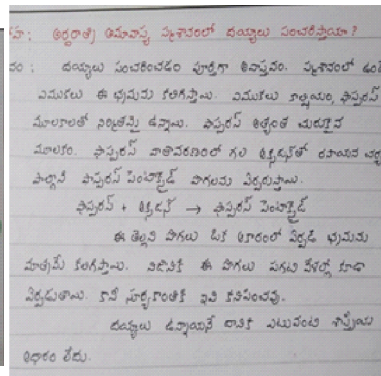 హ: అర్ధరాత్రి అమావాస్య స్మశానంలో దయ్యాలు సంచరిస్తాయా?
వం: దయ్యాలు సంచరించడం పూర్తిగా అవాస్తవం. స్మశానంలో ఉండే
ఎముకలు ఈ భ్రమను కలిగిస్తాయి. ఎముకలు కాల్షియం, ఫాస్ఫరస్
మూలకాలతో నిర్మితమై ఉన్నాయి. ఫాస్ఫరస్ అత్యంత చురుకైన
మూలకం. ఫాస్ఫరస్ వాతావరణంలో గల ఆక్సిజన్‌తో రసాయన చర్య
పొల్గొని ఫాస్ఫరస్ పెంటాక్సైడ్ పొగలను ఏర్పరుస్తాయి.
ఫాస్ఫరస్ + ఆక్సిజన్ → ఫాస్ఫరస్ పెంటాక్సైడ్
ఈ తెల్లని పొగలు ఒక ఆకారంలో ఏర్పడి భ్రమను
మాత్రమే కలిగిస్తాయి. నిజానికి ఈ పొగలు పగటి వేళల్లో కూడా
ఏర్పడుతాయి. కానీ సూర్యకాంతికి ఇవి కనిపించవు.
దయ్యాలు ఉన్నాయనే దానికి ఎటువంటి శాస్త్రీయ
ఆధారం లేదు.